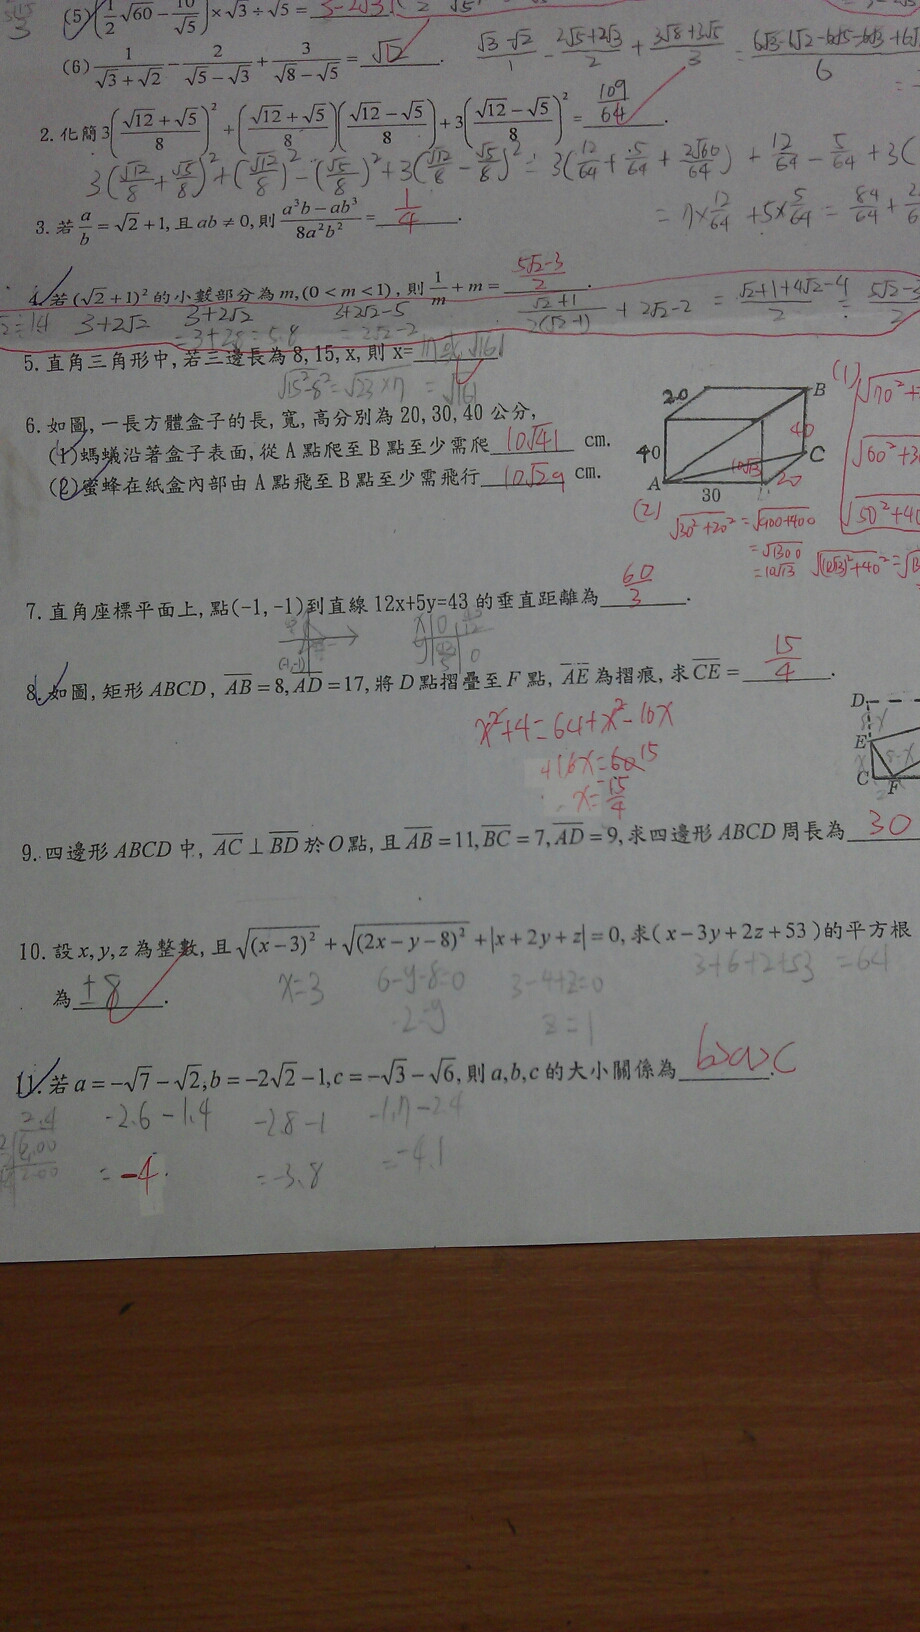 (5) (1/2 √60 − 10/√5) × √3 ÷ √5 =
(6) 1/(√3+√2) − 2/(√5−√3) + 3/(√8−√5) = √12 .
(√3−√2)/1 − (2√5+2√3)/2 + (3√8+3√5)/3
2. 化簡 3((√12+√5)/8)² + ((√12+√5)/8)((√12−√5)/8) + 3((√12−√5)/8)² = 109/64 .
3(√12/8 + √5/8)² + (√12/8)² − (√5/8)² + 3(√12/8 − √5/8)² = 3(12/64 + 5/64 + 2√60/64) + 12/64 − 5/64 + 3(
= 7×12/64 + 5×5/64 = 84/64 +
3. 若 a/b = √2+1, 且 ab ≠ 0, 則 (a³b − ab³)/(8a²b²) = 1/4 .
4. 若 (√2+1)² 的小數部分為 m, (0 < m < 1), 則 1/m + m = (5√2−3)/2 .
3+2√2 3+2√2 3+2√2−5
=3+2.8=5.8 =2√2−2
(√2+1)/(2(√2−1)) + 2√2−2 = (√2+1+4√2−4)/2 = (5√2−3)/2
5. 直角三角形中, 若三邊長為 8, 15, x, 則 x= 17 或 √161
√15²−8² = √23×7 = √161
6. 如圖, 一長方體盒子的長, 寬, 高分別為 20, 30, 40 公分,
(1) 螞蟻沿著盒子表面, 從 A 點爬至 B 點至少需爬 10√41 cm.
(2) 蜜蜂在紙盒內部由 A 點飛至 B 點至少需飛行 10√29 cm.
20
B
40
40
C
A
10√13
20
30
(1)
√50²+40
(2)
√30²+20² = √900+400
= √1300
= 10√13
√(10√13)²+40² =
7. 直角座標平面上, 點(-1, -1)到直線 12x+5y=43 的垂直距離為 60/3 .
(-1,-1)
8. 如圖, 矩形 ABCD, AB = 8, AD = 17, 將 D 點摺疊至 F 點, AE 為摺痕, 求 CE = 15/4 .
x²+4=64+x²−16x
+16x=60 15
x=15/4
D
E
C
F
8-x
9. 四邊形 ABCD 中, AC ⊥ BD 於 O 點, 且 AB = 11, BC = 7, AD = 9, 求四邊形 ABCD 周長為 30
10. 設 x, y, z 為整數, 且 √(x−3)² + √(2x−y−8)² + |x+2y+z| = 0, 求 (x−3y+2z+53) 的平方根
3+6+2+53 =64
為 ±8 .
x=3
6-y-8=0
3-4+z=0
-2=y
z=1
11. 若 a = −√7 − √2, b = −2√2 − 1, c = −√3 − √6, 則 a, b, c 的大小關係為 b>a>c .
-2.6-1.4
-2.8-1
-1.7-2.4
= -4
=-3.8
=-4.1
2.4